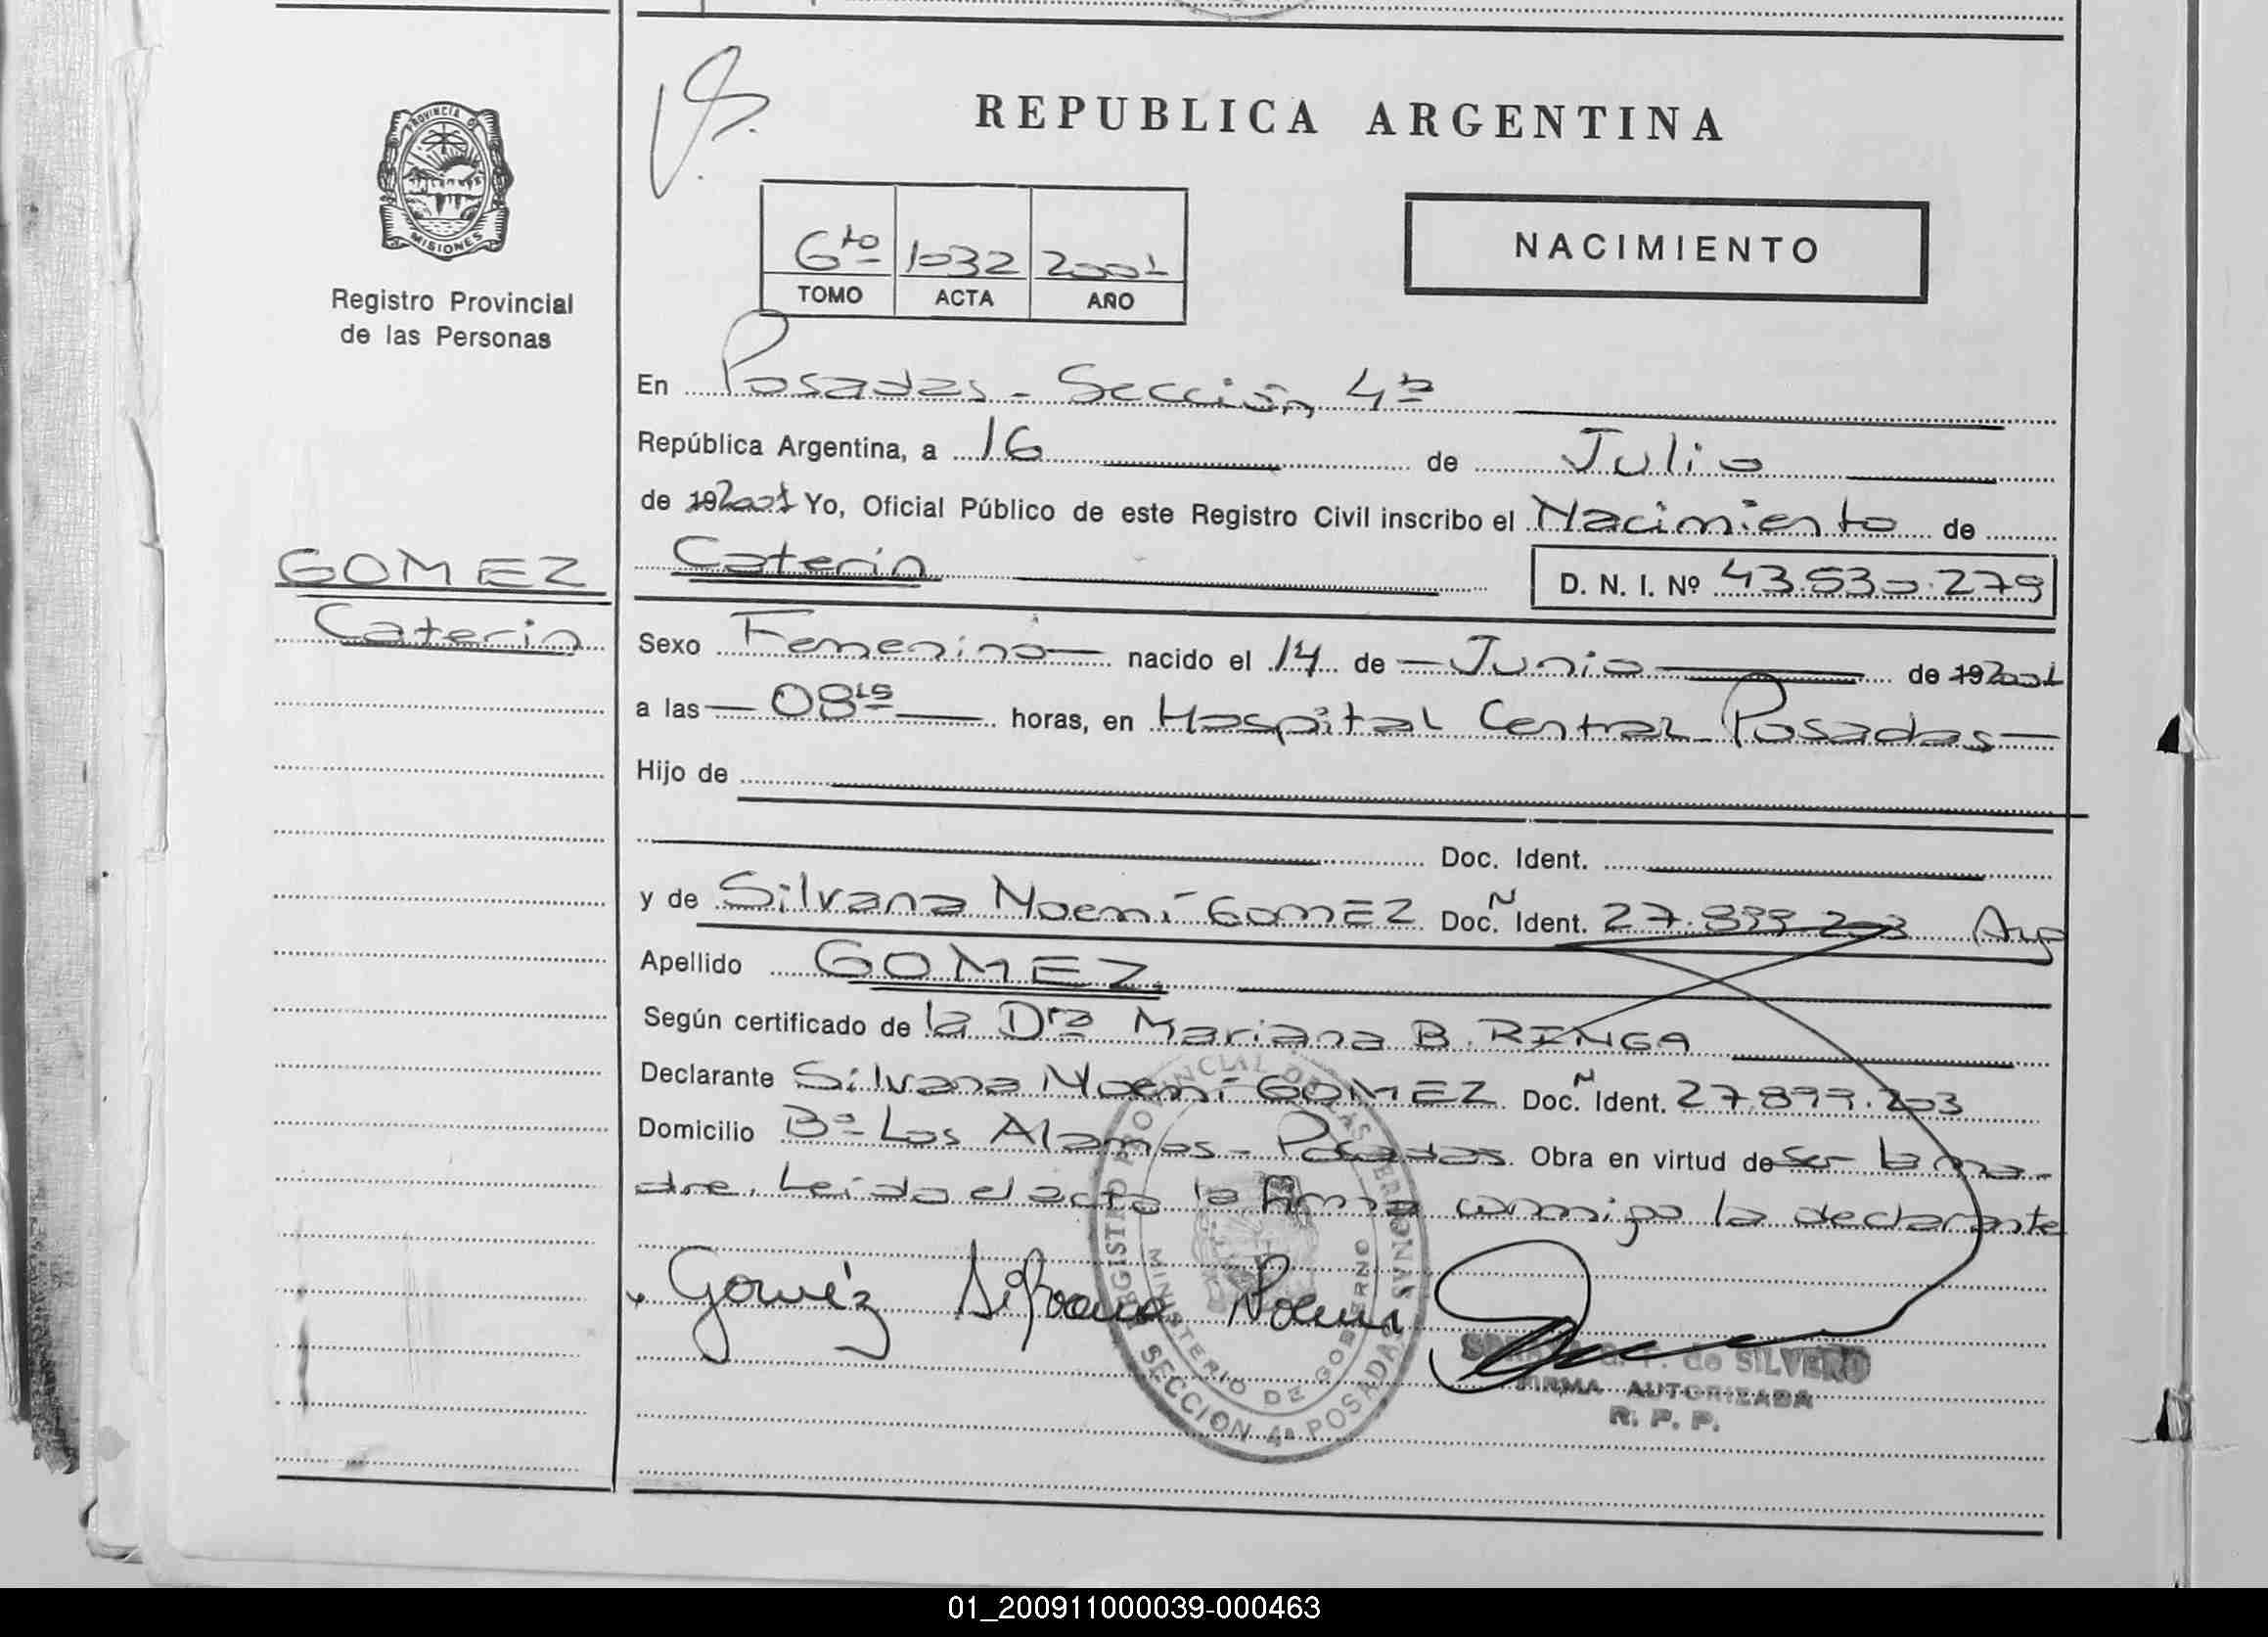 REPUBLICA ARGENTINA
PROVINCIA D
MISIONES
Registro Provincial
de las Personas
6to 1032 2001
TOMO ACTA AÑO
NACIMIENTO
En Posadas - Sección 4ta
República Argentina, a 16 de Julio
de 192001 Yo, Oficial Público de este Registro Civil inscribo el Nacimiento de
Caterin D. N. I. Nº 43.530.279
GOMEZ
Caterin
Sexo Femenino nacido el 14 de Junio de 192001
a las 0815 horas, en Hospital Central Posadas
Hijo de
Doc. Ident.
y de Silvana Noemí GOMEZ Doc. Ñ Ident. 27.899.203 Arg
Apellido GOMEZ
Según certificado de la Dra Mariana B. RINGA
Declarante Silvana Noemí GOMEZ Doc. Ñ Ident. 27.899.203
Domicilio Bº Los Alamos - Posadas. Obra en virtud de ser la ma-
dre. Leída el acta la firma conmigo la declarante
Goméz Silvana Noemi
REGISTRO PROVINCIAL DE LAS PERSONAS
MINISTERIO DE GOBIERNO
SECCION 4ª POSADAS
de SILVERO
FIRMA AUTORIZADA
R. P. P.
01_200911000039-000463